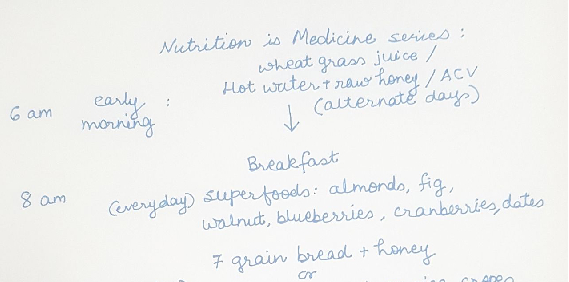 Nutrition is Medicine series :
wheat grass juice /
6 am early morning : Hot water + raw honey / ACV
(alternate days)
↓
Breakfast
8 am (everyday) superfoods: almonds, fig,
walnut, blueberries, cranberries, dates
7 grain bread + honey
or